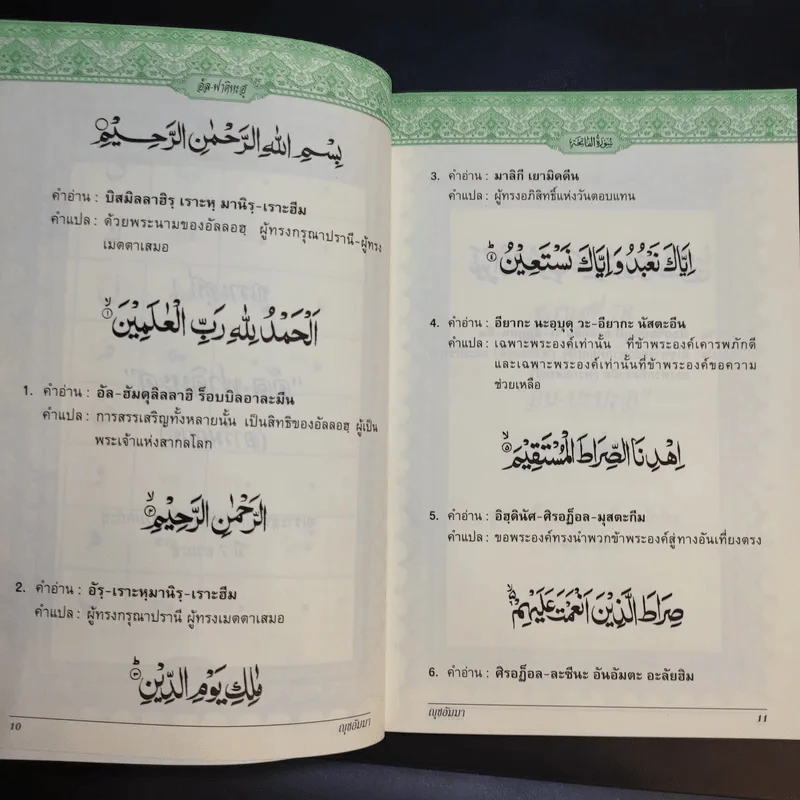 อัล-ฟาติหะฮฺ
بِسْمِ اللهِ الرَّحْمٰنِ الرَّحِيْمِ
คำอ่าน : บิสมิลลาฮิรฺ เราะหฺ มานิรฺ-เราะฮีม
คำแปล : ด้วยพระนามของอัลลอฮฺ ผู้ทรงกรุณาปรานี-ผู้ทรง
เมตตาเสมอ
اَلْحَمْدُ لِلهِ رَبِّ الْعٰلَمِيْنَ ۙ﴿۱﴾
1. คำอ่าน : อัล-ฮัมดุลิลลาฮิ ร็อบบิลอาละมีน
คำแปล : การสรรเสริญทั้งหลายนั้น เป็นสิทธิของอัลลอฮฺ ผู้เป็น
พระเจ้าแห่งสากลโลก
الرَّحْمٰنِ الرَّحِيْمِ ۙ﴿۲﴾
2. คำอ่าน : อัรฺ-เราะหฺมานิรฺ-เราะฮีม
คำแปล : ผู้ทรงกรุณาปรานี ผู้ทรงเมตตาเสมอ
مٰلِكِ يَوْمِ الدِّيْنِ ؕ﴿۳﴾
10 ญุซอัมมา
سُوْرَةُ الْفَاتِحَةِ
3. คำอ่าน : มาลิกี เยามิดดีน
คำแปล : ผู้ทรงอภิสิทธิ์แห่งวันตอบแทน
اِيَّاكَ نَعْبُدُ وَاِيَّاكَ نَسْتَعِيْنُ ؕ﴿۴﴾
4. คำอ่าน : อียากะ นะอฺบุดุ วะ-อียากะ นัสตะอีน
คำแปล : เฉพาะพระองค์เท่านั้น ที่ข้าพระองค์เคารพภักดี
และเฉพาะพระองค์เท่านั้นที่ข้าพระองค์ขอความ
ช่วยเหลือ
اِهْدِنَا الصِّرَاطَ الْمُسْتَقِيْمَ ۙ﴿۵﴾
5. คำอ่าน : อิฮฺดินัศ-ศิรอฏ็อล-มุสตะกีม
คำแปล : ขอพระองค์ทรงนำพวกข้าพระองค์สู่ทางอันเที่ยงตรง
صِرَاطَ الَّذِيْنَ اَنْعَمْتَ عَلَيْهِمْ ۙ
6. คำอ่าน : ศิรอฏ็อล-ละซีนะ อันอัมตะ อะลัยฮิม
ญุซอัมมา 11